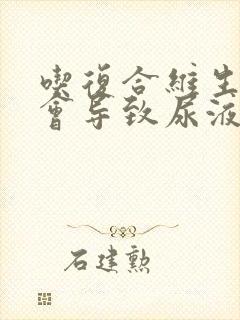 喫復合維生
會导致尿液
石建勲